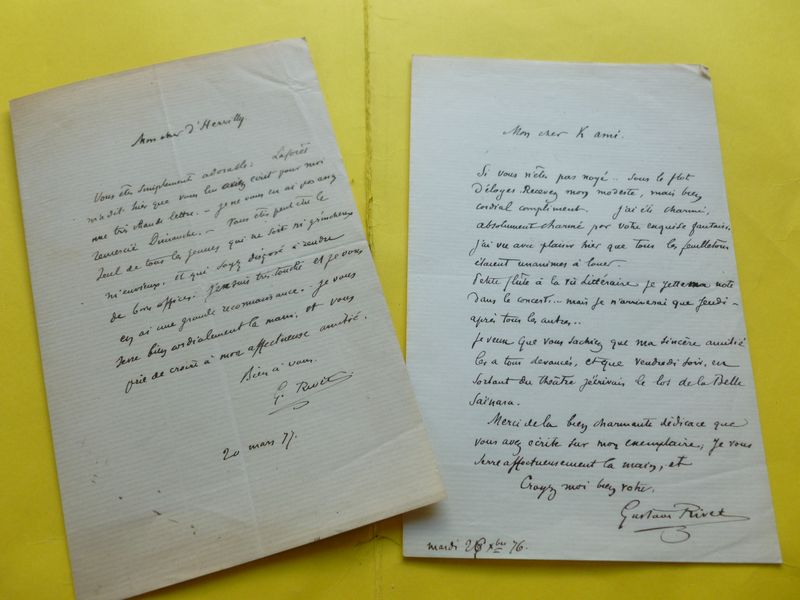 Mon cher d'Hervilly
Vous êtes simplement adorable: Laforêt
m'a dit hier que vous lui aviez écrit pour moi
une très chaude lettre. - Je ne vous en ai pas assez
remercié Dimanche. - Vous êtes peut être le
seul de tous les jeunes qui ne soit ni grincheux
ni envieux, et qui soyez disposé à rendre
de bons offices. J'en suis très touché et je vous
en ai une grande reconnaissance. Je vous
serre bien cordialement la main, et vous
prie de croire à mon affectueuse amitié.
Bien à vous.
G. Rivet
20 mars 77.
Mon cher ami.
Si vous n'êtes pas noyé.. sous le flot
d'éloges. Recevez mon modeste, mais bien
cordial compliment. J'ai été charmé,
absolument charmé par votre exquise fantaisie,
j'ai vu avec plaisir hier que tous les feuilletons
étaient unanimes à louer.
Petite flûte à la vie Littéraire je jetterai ma note
dans le concert... mais je n'arriverai que Jeudi -
après tous les autres..
Je veux que vous sachiez que ma sincère amitié
les a tous devancés, et que vendredi soir, en
sortant du théâtre j'écrivais le los de la Belle
Saïnara.
Merci de la bien charmante dédicace que
vous avez écrite sur mon exemplaire, Je vous
serre affectueusement la main, et
Croyez moi bien votre.
Gustave Rivet
mardi 26 xbre 76.